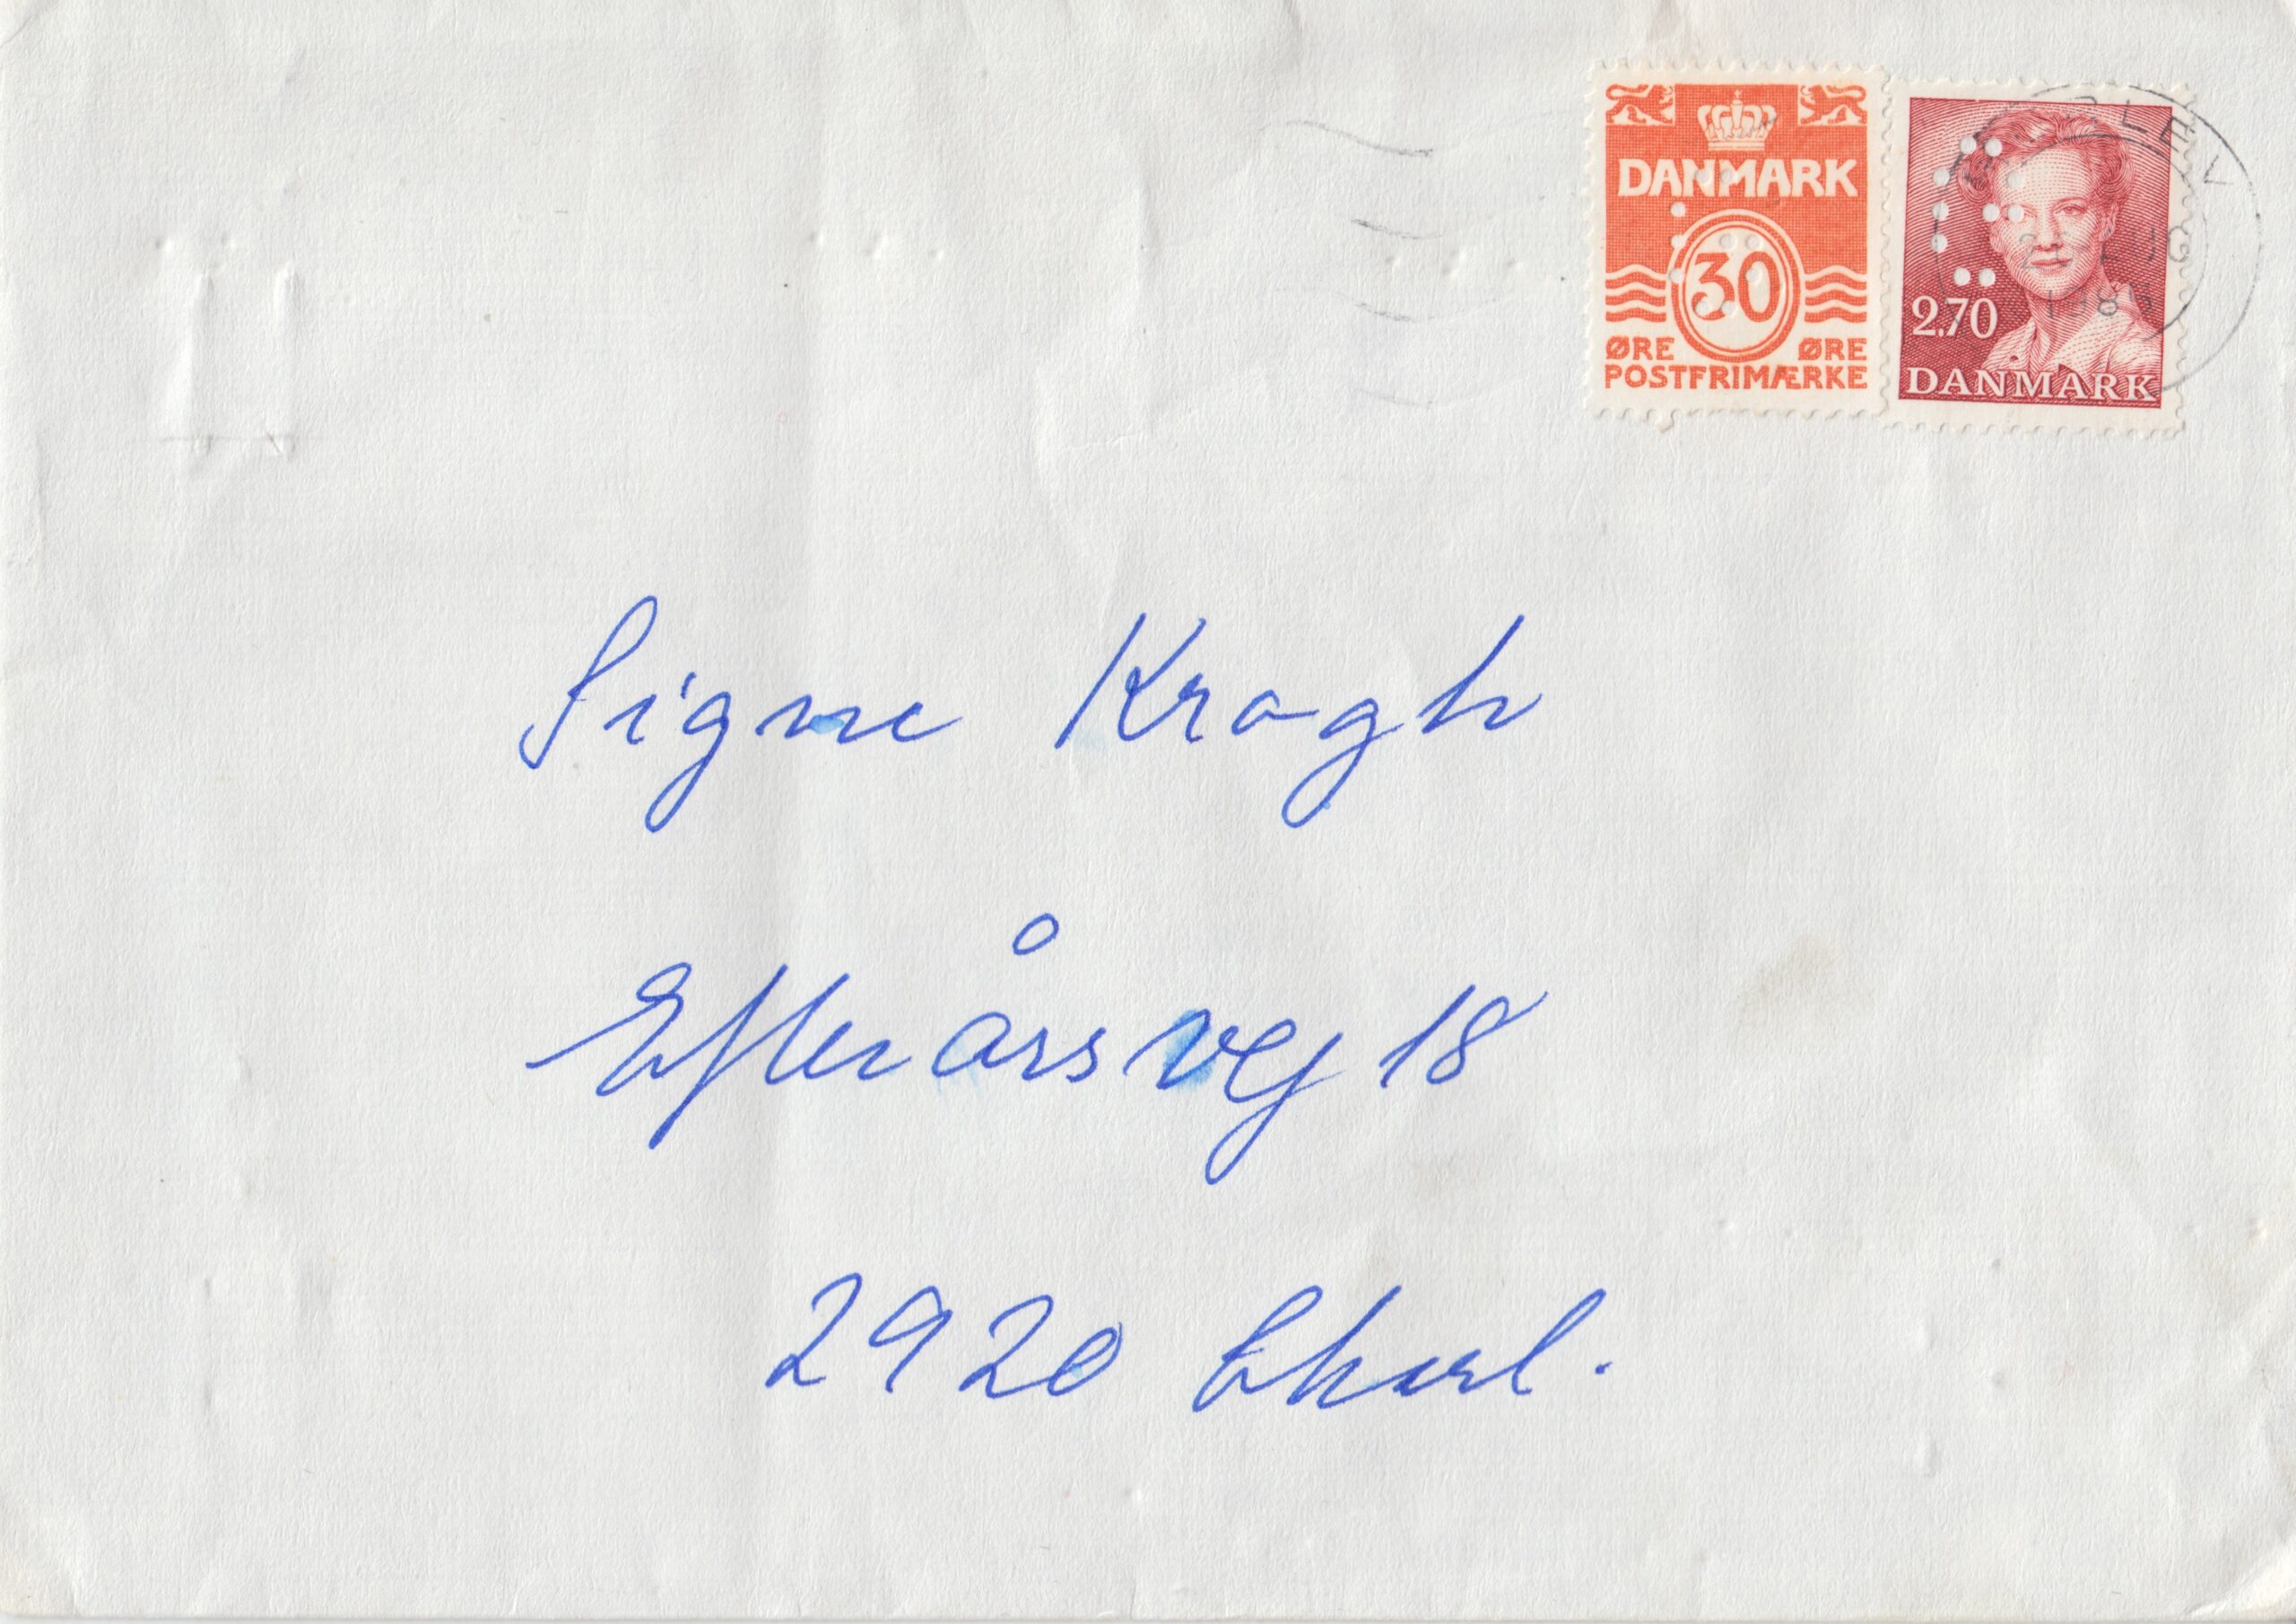 DANMARK
30
ØRE ØRE
POSTFRIMÆRKE
2.70
DANMARK
Signe Kragh
Efterårsvej 18
2920 Charl.